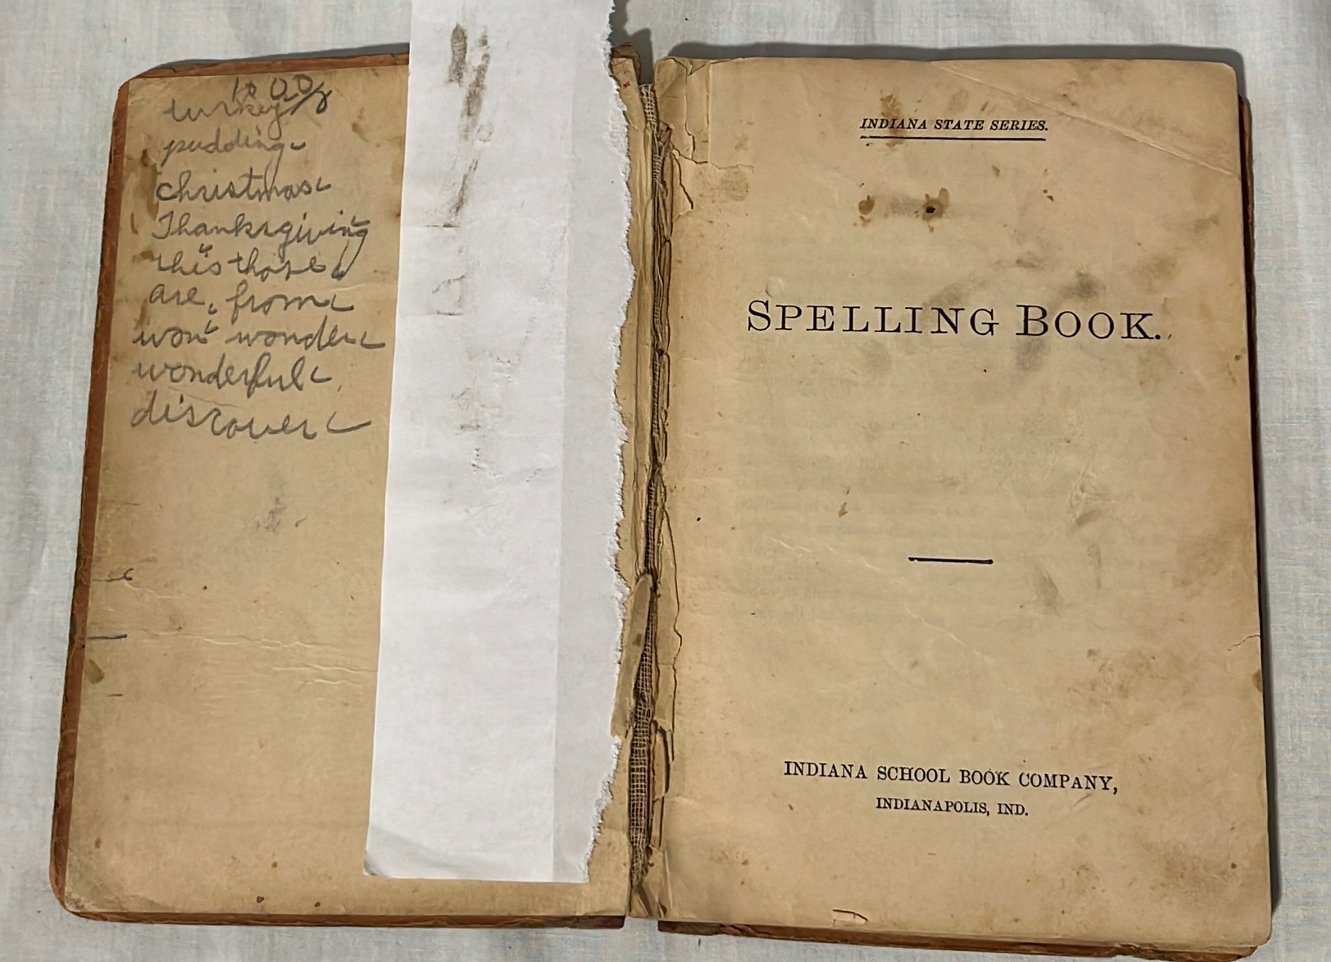 turkey
pudding
christmas
Thanksgiving
this those
are, from
won't wonder
wonderful
discover
INDIANA STATE SERIES.
SPELLING BOOK.
INDIANA SCHOOL BOOK COMPANY,
INDIANAPOLIS, IND.